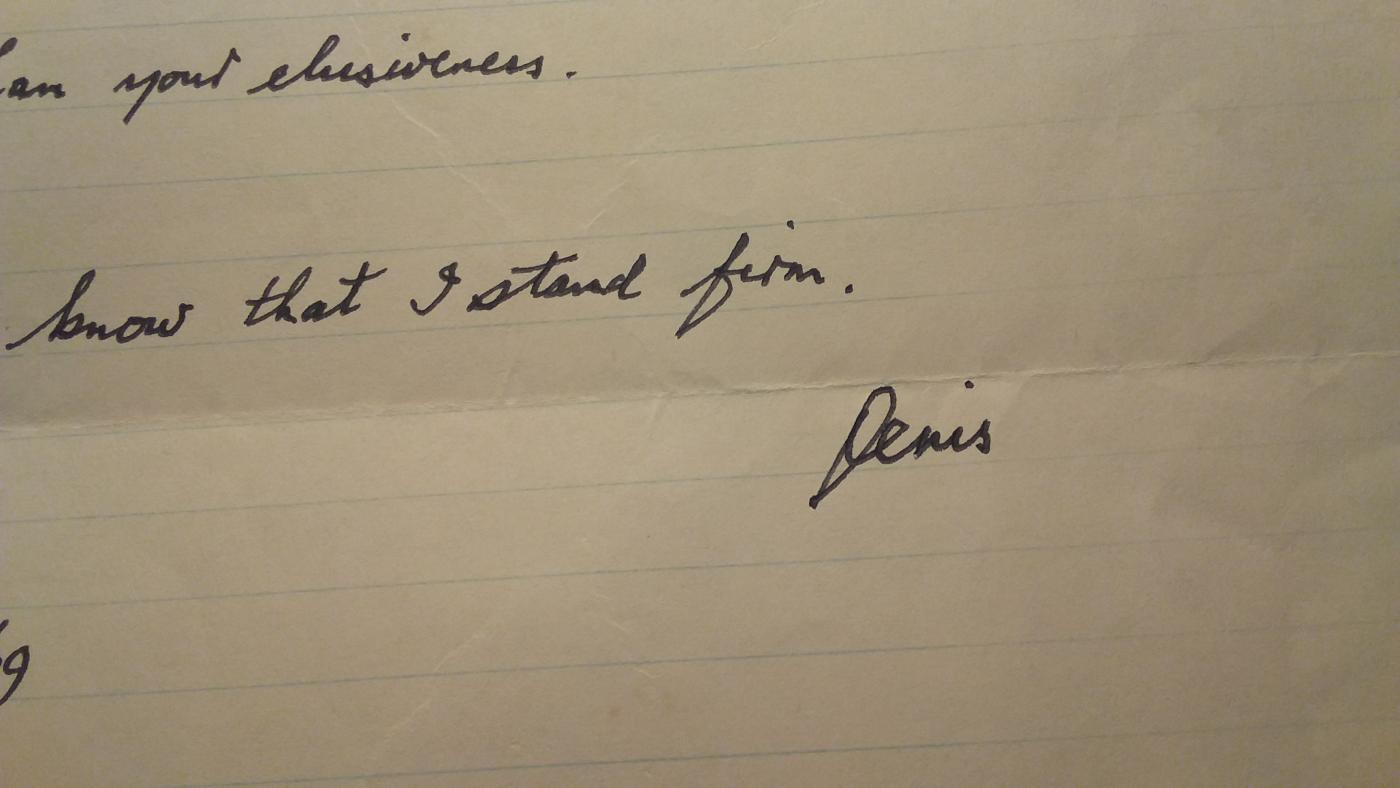 your elusiveness.
know that I stand firm.
Denis
9